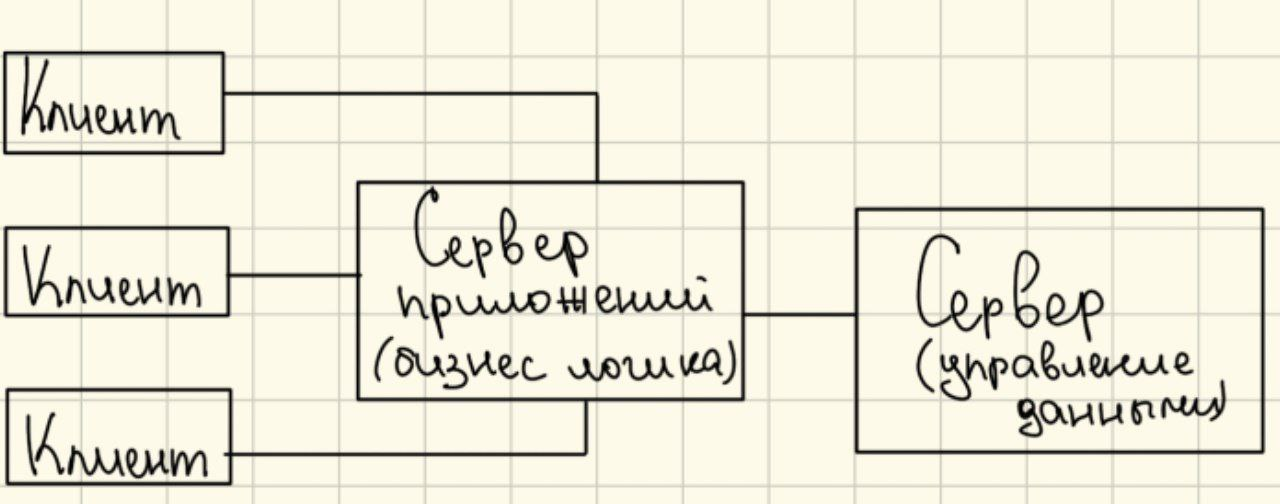 Клиент
Клиент
Клиент
Сервер
приложений
(бизнес логика)
Сервер
(управление
данными)